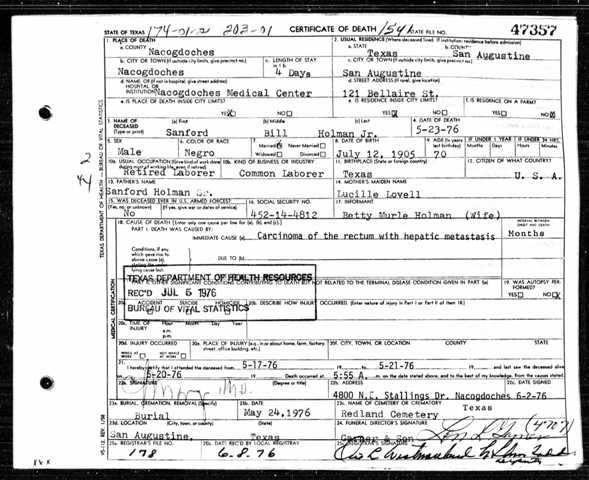 STATE OF TEXAS 174-01-2 203-01 CERTIFICATE OF DEATH 154 STATE FILE NO. 47357
1. PLACE OF DEATH 2. USUAL RESIDENCE (Where deceased lived. If institution: residence before admission)
a. COUNTY Nacogdoches a. STATE Texas b. COUNTY San Augustine
b. CITY OR TOWN (If outside city limits, give precinct no.) c. LENGTH OF STAY in 1 b. c. CITY OR TOWN (If outside city limits, give precinct no.)
Nacogdoches 4 Days San Augustine
d. NAME OF (If not in hospital, give street address) HOSPITAL OR INSTITUTION Nacogdoches Medical Center d. STREET ADDRESS (If rural, give location) 121 Bellaire St.
e. IS PLACE OF DEATH INSIDE CITY LIMITS? e. IS RESIDENCE INSIDE CITY LIMITS? f. IS RESIDENCE ON A FARM?
YES X NO YES X NO YES NO X
3. NAME OF DECEASED (Type or print) (a) First (b) Middle (c) Last 4. DATE OF DEATH
Sanford Bill Holman Jr. 5-23-76
5. SEX 6. COLOR OR RACE 7. Married X Never Married Widowed Divorced 8. DATE OF BIRTH 9. AGE (In years last birthday) IF UNDER 1 YEAR Months Days IF UNDER 24 HRS. Hours Min.
Male Negro July 12, 1905 70
10a. USUAL OCCUPATION (Give kind of work done during most of working life, even if retired) 10b. KIND OF BUSINESS OR INDUSTRY 11. BIRTHPLACE (State or foreign country) 12. CITIZEN OF WHAT COUNTRY?
Retired Laborer Common Laborer Texas U. S. A.
13. FATHER'S NAME 14. MOTHER'S MAIDEN NAME
Sanford Holman Sr. Lucille Lovell
15. WAS DECEASED EVER IN U.S. ARMED FORCES? 16. SOCIAL SECURITY NO. 17. INFORMANT
(Yes, no, or unknown) (If yes, give war or dates of service)
No 452-14-4812 Betty Murle Holman (Wife)
18. CAUSE OF DEATH (Enter only one cause per line for (a), (b), and (c).) INTERVAL BETWEEN ONSET AND DEATH
PART I. DEATH WAS CAUSED BY:
IMMEDIATE CAUSE (a) Carcinoma of the rectum with hepatic metastasis Months
Conditions, if any, which gave rise to above cause (a), stating the underlying cause last.
DUE TO (b)
TEXAS DEPARTMENT OF HEALTH RESOURCES
REC'D JUL 5 1976
BUREAU OF VITAL STATISTICS
CONDITIONS CONTRIBUTING TO DEATH BUT NOT RELATED TO THE TERMINAL DISEASE CONDITION GIVEN IN PART
19. WAS AUTOPSY PERFORMED?
YES NO X
20a. ACCIDENT SUICIDE HOMICIDE 20b. DESCRIBE HOW INJURY OCCURRED. (Enter nature of injury in Part I or Part II of item 18.)
20c. TIME OF INJURY Hour Month Day Year
a.m.
p.m.
20d. INJURY OCCURRED 20e. PLACE OF INJURY (e.g., in or about home, farm, factory, street, office building, etc.) 20f. CITY, TOWN, OR LOCATION COUNTY STATE
WHILE AT WORK NOT WHILE AT WORK
21. I hereby certify that I attended the deceased from 5-17-76 5-21-76 and last saw the deceased alive
5-20-76 Death occurred at 5:55 A. m. on the date stated above, and to the best of my knowledge, from the causes stated.
22a. SIGNATURE (Degree or title) 22b. ADDRESS 22c. DATE SIGNED
4800 N.E. Stallings Dr. Nacogdoches 6-2-76
23a. BURIAL, CREMATION, REMOVAL 23b. DATE 23c. NAME OF CEMETERY OR CREMATORY Texas
Burial May 24,1976 Redland Cemetery
23d. LOCATION (City, town, or county) (State) 24. FUNERAL DIRECTOR'S SIGNATURE (4707)
San Augustine, Texas & Son
25a. REGISTRAR'S FILE NO. 25b. DATE REC'D BY LOCAL REGISTRAR 25c. REGISTRAR'S SIGNATURE
178 6-8-76
TEXAS DEPARTMENT OF HEALTH — BUREAU OF VITAL STATISTICS
MEDICAL CERTIFICATION
2
44